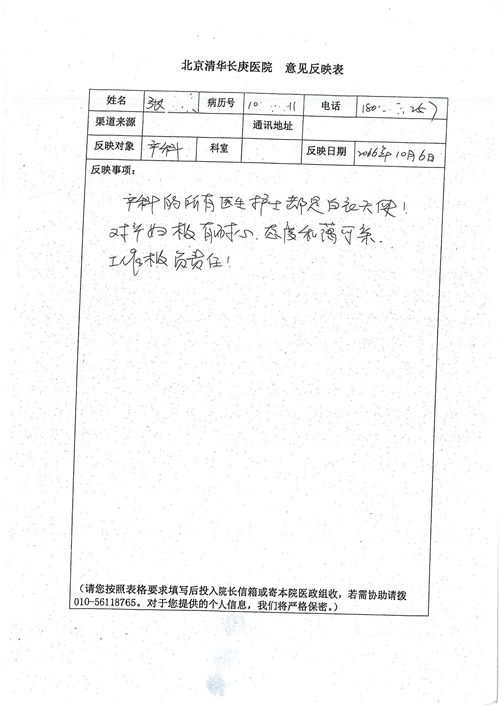 北京清华长庚医院 意见反映表
姓名 张 病历号 10 11 电话 180 257
渠道来源 通讯地址
反映对象 产科 科室 反映日期 2016年10月6日
反映事项:
产科的所有医生护士都是白衣天使!
对孕妇极有耐心、态度和蔼可亲.
工作极负责任!
(请您按照表格要求填写后投入院长信箱或寄本院医政组收,若需协助请拨
010-56118765。对于您提供的个人信息,我们将严格保密。)